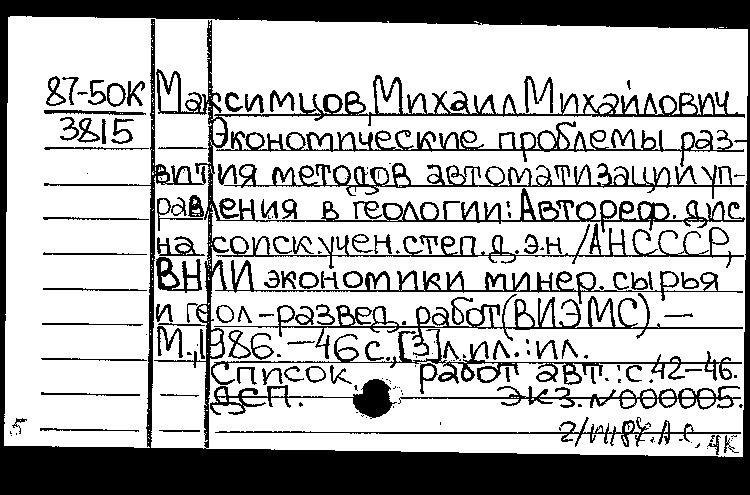 87-50К Максимцов, Михаил Михайлович.
3815 Экономические проблемы раз-
вития методов автоматизации уп-
равления в геологии: Автореф. дис.
на соиск. учен. степ. д.э.н. / АН СССР,
ВНИИ экономики минер. сырья
и геол-развед. работ (ВИЭМС). —
М., 1986. — 46 с., [3] л. ил. : ил.
Список работ авт.: с. 42-46.
ДСП. ЭКЗ. N000005.
5 2/VII 87. А.С. ЧК